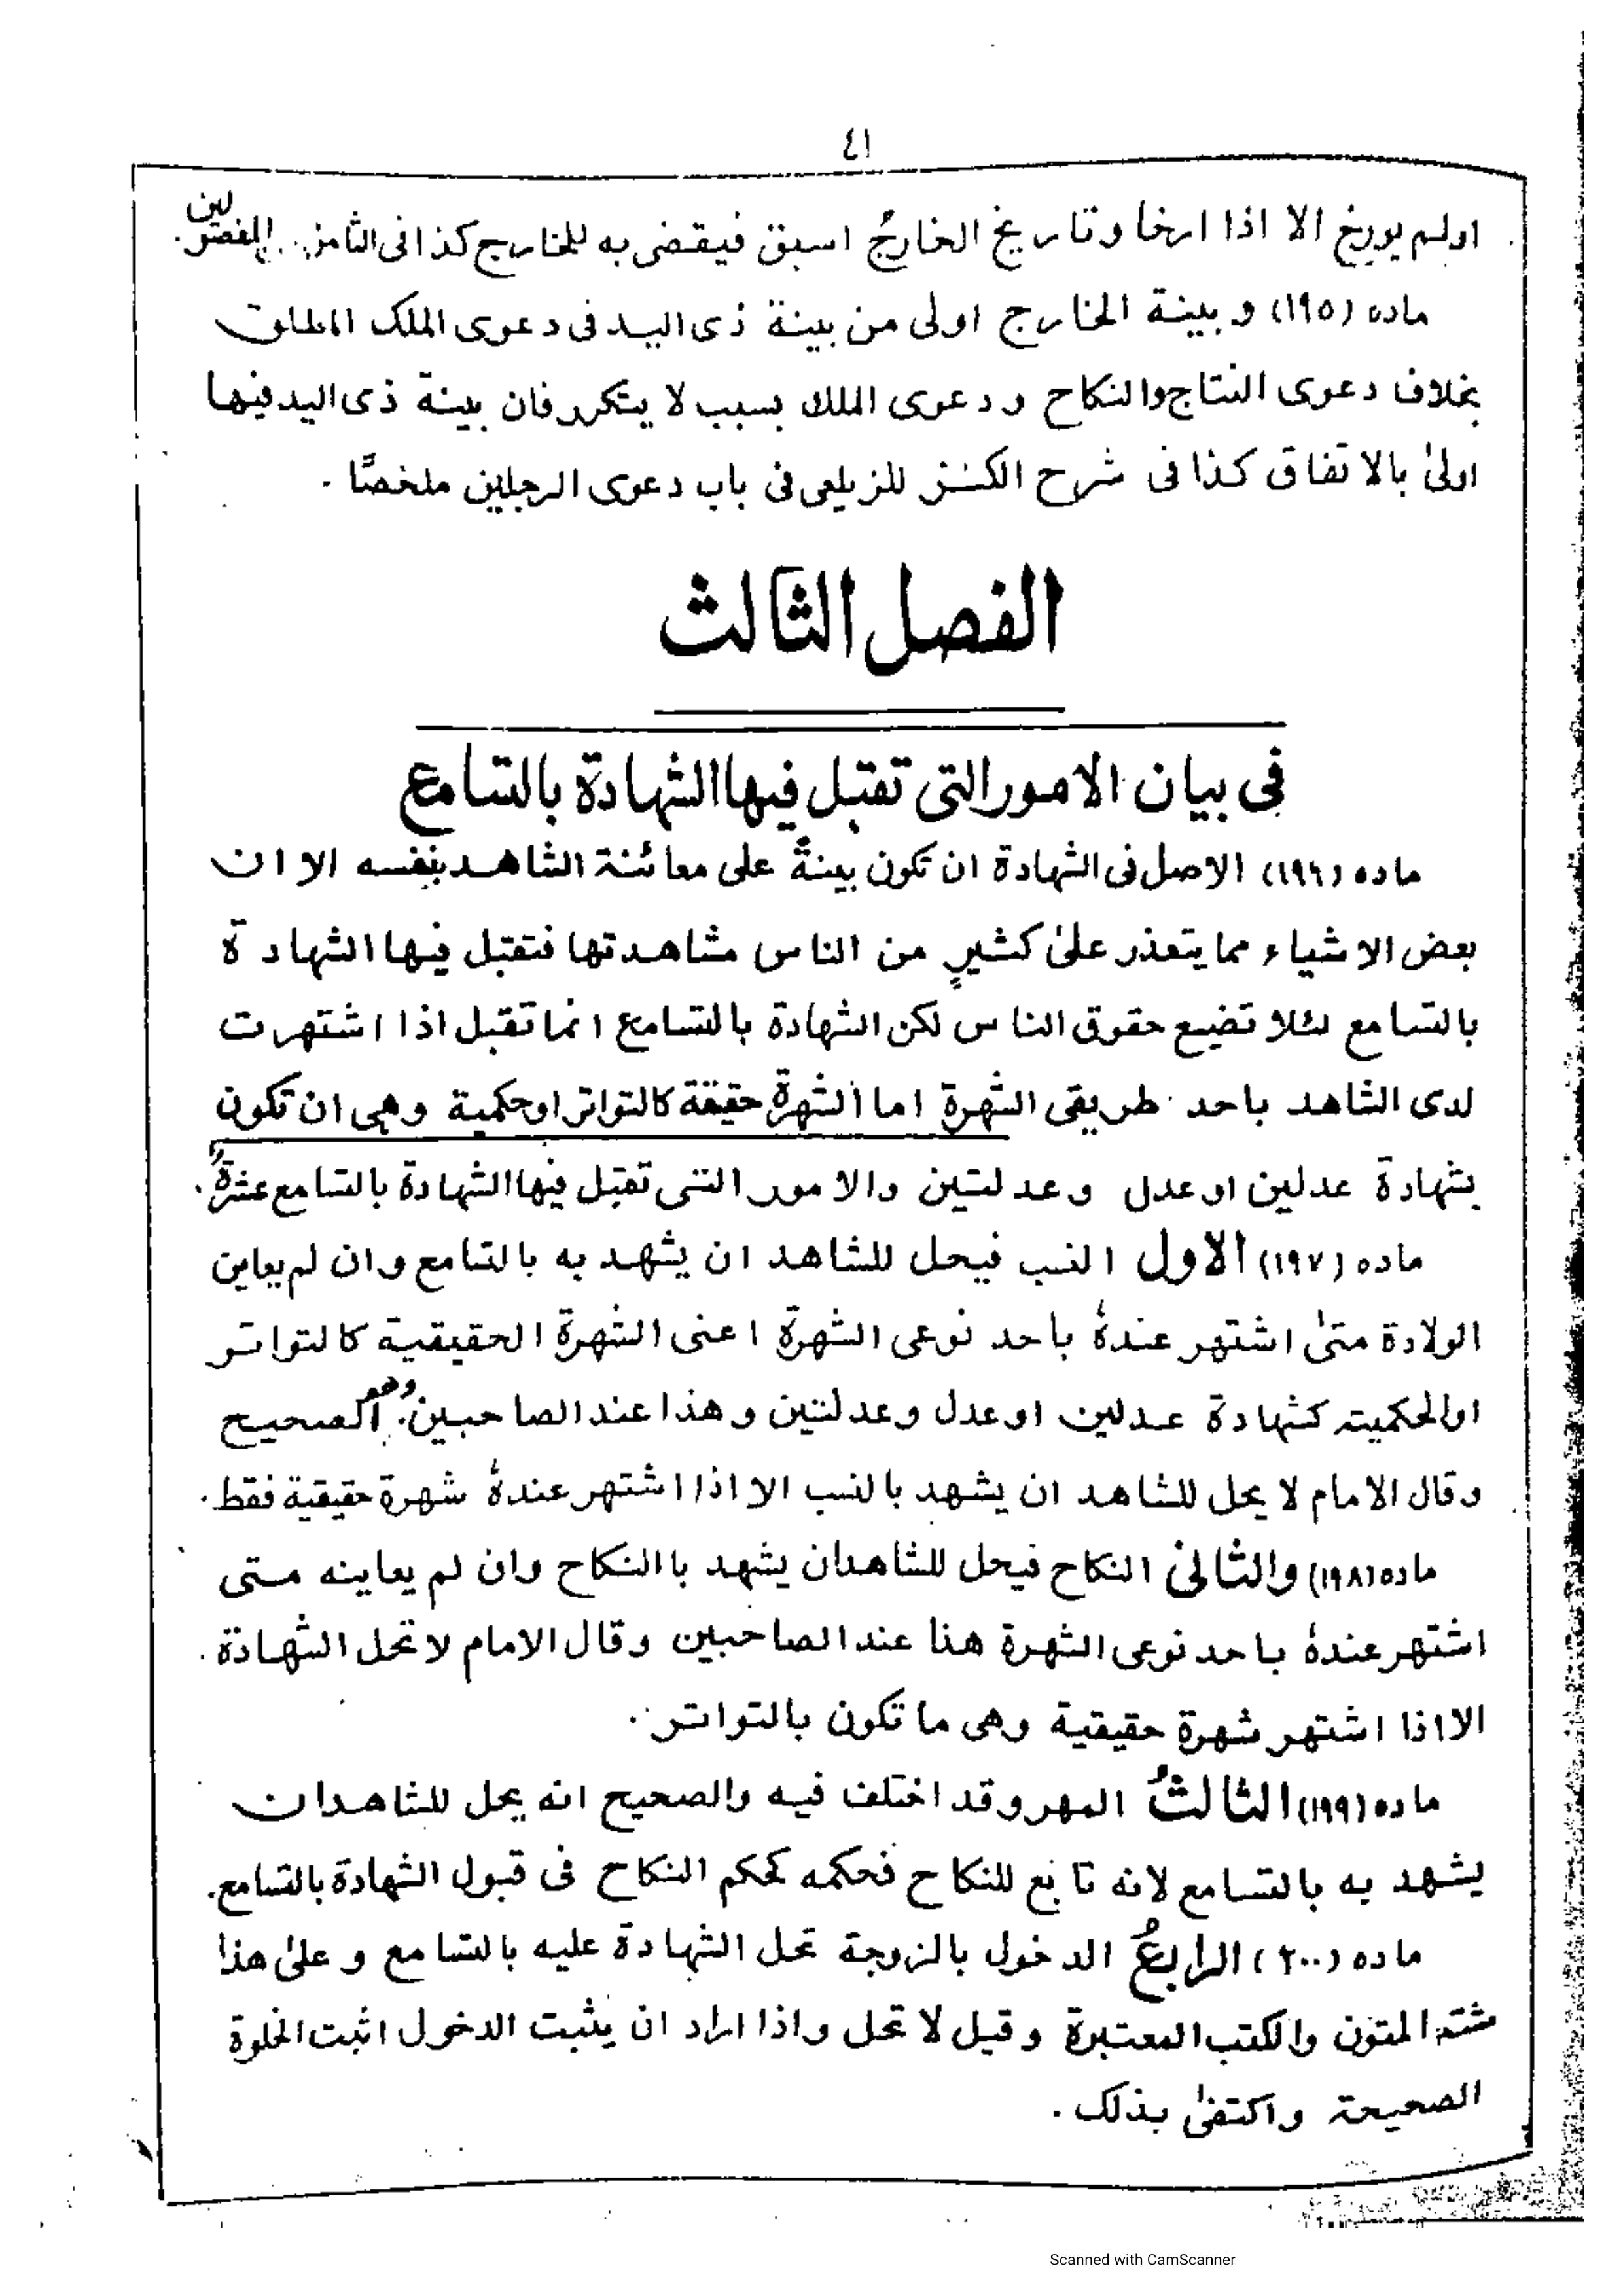 ٤١
اولم يورخ الا اذا ارخا وتاريخ الخارج اسبق فيقضى به للخارج كذا فى الثامن الفصولين.
ماده (١٩٥) وبينة الخارج اولى من بينة ذى اليد فى دعوى الملك المطلق
بخلاف دعوى النتاج والنكاح ودعوى الملك بسبب لا يتكرر فان بينة ذى اليد فيها
اولىٰ بالاتفاق كذا فى شرح الكنز للزيلعى فى باب دعوى الرجلين ملخصًا .
الفصل الثالث
فى بيان الامور التى تقبل فيها الشهادة بالتسامع
ماده (١٩٦) الاصل فى الشهادة ان تكون بينةً على معائنة الشاهد بنفسه الا ان
بعض الاشياء مما يتعذر علىٰ كثيرٍ من الناس مشاهدتها فتقبل فيها الشهادة
بالتسامع لئلا تضيع حقوق الناس لكن الشهادة بالتسامع انما تقبل اذا اشتهرت
لدى الشاهد باحد طريقى الشهرة اما الشهرة حقيقة كالتواتر او حكمية وهى ان تكون
بشهادة عدلين او عدل وعدلتين والامور التى تقبل فيها الشهادة بالتسامع عشرةٌ .
ماده (١٩٧) الاول النسب فيحل للشاهد ان يشهد به بالتسامع وان لم يعاين
الولادة متىٰ اشتهر عندهٗ باحد نوعى الشهرة اعنى الشهرة الحقيقية كالتواتر
اوالحكمية كشهادة عدلين او عدل وعدلتين وهذا عند الصاحبين. وهو الصحيح
وقال الامام لا يحل للشاهد ان يشهد بالنسب الا اذا اشتهر عندهٗ شهرة حقيقية فقط .
ماده (١٩٨) والثانى النكاح فيحل للشاهدان يشهد باالنكاح وان لم يعاينه متى
اشتهر عندهٗ باحد نوعى الشهرة هذا عند الصاحبين وقال الامام لا تحل الشهادة .
الا اذا اشتهر شهرة حقيقية وهى ما تكون بالتواتر .
ماده (١٩٩) الثالثُ المهر وقد اختلف فيه والصحيح انه يحل للشاهدان
يشهد به بالتسامع لانه تابع للنكاح فحكمه كحكم النكاح فى قبول الشهادة بالتسامع.
ماده (٢٠٠) الرابعُ الدخول بالزوجة تحل الشهادة عليه بالتسامع وعلىٰ هذا
المتون والكتب المعتبرة وقيل لا تحل واذا اراد ان يثبت الدخول اثبت الخلوة
الصحيحة واكتفىٰ بذلك .
Scanned with CamScanner